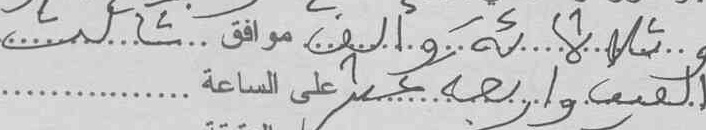 و ثلاثمائة و ألف موافق ثالث
ألفين وأربعة عشر على الساعة